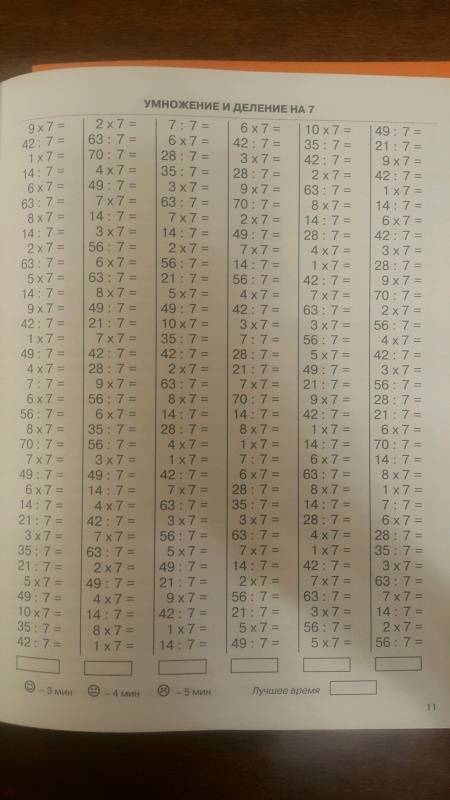 УМНОЖЕНИЕ И ДЕЛЕНИЕ НА 7
9 x 7 = 2 x 7 = 7 : 7 = 6 x 7 = 10 x 7 = 49 : 7 =
42 : 7 = 63 : 7 = 6 x 7 = 42 : 7 = 35 : 7 = 21 : 7 =
1 x 7 = 70 : 7 = 28 : 7 = 3 x 7 = 42 : 7 = 9 x 7 =
14 : 7 = 4 x 7 = 35 : 7 = 28 : 7 = 2 x 7 = 42 : 7 =
6 x 7 = 49 : 7 = 3 x 7 = 9 x 7 = 63 : 7 = 1 x 7 =
63 : 7 = 7 x 7 = 63 : 7 = 70 : 7 = 8 x 7 = 14 : 7 =
8 x 7 = 14 : 7 = 7 x 7 = 2 x 7 = 14 : 7 = 6 x 7 =
14 : 7 = 3 x 7 = 14 : 7 = 49 : 7 = 28 : 7 = 42 : 7 =
2 x 7 = 56 : 7 = 2 x 7 = 7 x 7 = 4 x 7 = 3 x 7 =
63 : 7 = 6 x 7 = 56 : 7 = 14 : 7 = 1 x 7 = 28 : 7 =
5 x 7 = 63 : 7 = 21 : 7 = 56 : 7 = 42 : 7 = 9 x 7 =
14 : 7 = 8 x 7 = 5 x 7 = 4 x 7 = 7 x 7 = 70 : 7 =
9 x 7 = 49 : 7 = 49 : 7 = 42 : 7 = 63 : 7 = 2 x 7 =
42 : 7 = 21 : 7 = 10 x 7 = 3 x 7 = 3 x 7 = 56 : 7 =
1 x 7 = 7 x 7 = 35 : 7 = 7 : 7 = 56 : 7 = 4 x 7 =
49 : 7 = 42 : 7 = 42 : 7 = 28 : 7 = 5 x 7 = 42 : 7 =
4 x 7 = 28 : 7 = 2 x 7 = 21 : 7 = 49 : 7 = 3 x 7 =
7 : 7 = 9 x 7 = 63 : 7 = 7 x 7 = 21 : 7 = 56 : 7 =
6 x 7 = 56 : 7 = 8 x 7 = 70 : 7 = 9 x 7 = 28 : 7 =
56 : 7 = 6 x 7 = 14 : 7 = 14 : 7 = 42 : 7 = 21 : 7 =
8 x 7 = 35 : 7 = 28 : 7 = 8 x 7 = 1 x 7 = 6 x 7 =
70 : 7 = 56 : 7 = 4 x 7 = 1 x 7 = 14 : 7 = 70 : 7 =
7 x 7 = 3 x 7 = 1 x 7 = 7 : 7 = 6 x 7 = 14 : 7 =
49 : 7 = 49 : 7 = 42 : 7 = 6 x 7 = 63 : 7 = 8 x 7 =
6 x 7 = 14 : 7 = 7 x 7 = 28 : 7 = 8 x 7 = 1 x 7 =
14 : 7 = 4 x 7 = 63 : 7 = 35 : 7 = 14 : 7 = 7 : 7 =
21 : 7 = 42 : 7 = 3 x 7 = 3 x 7 = 28 : 7 = 6 x 7 =
3 x 7 = 7 x 7 = 56 : 7 = 63 : 7 = 4 x 7 = 28 : 7 =
35 : 7 = 63 : 7 = 5 x 7 = 7 x 7 = 1 x 7 = 35 : 7 =
21 : 7 = 2 x 7 = 49 : 7 = 14 : 7 = 42 : 7 = 3 x 7 =
5 x 7 = 49 : 7 = 21 : 7 = 2 x 7 = 7 x 7 = 63 : 7 =
49 : 7 = 4 x 7 = 9 x 7 = 56 : 7 = 63 : 7 = 7 x 7 =
10 x 7 = 14 : 7 = 42 : 7 = 21 : 7 = 3 x 7 = 14 : 7 =
35 : 7 = 8 x 7 = 1 x 7 = 5 x 7 = 56 : 7 = 2 x 7 =
42 : 7 = 1 x 7 = 14 : 7 = 49 : 7 = 5 x 7 = 56 : 7 =
– 3 мин – 4 мин – 5 мин Лучшее время
11